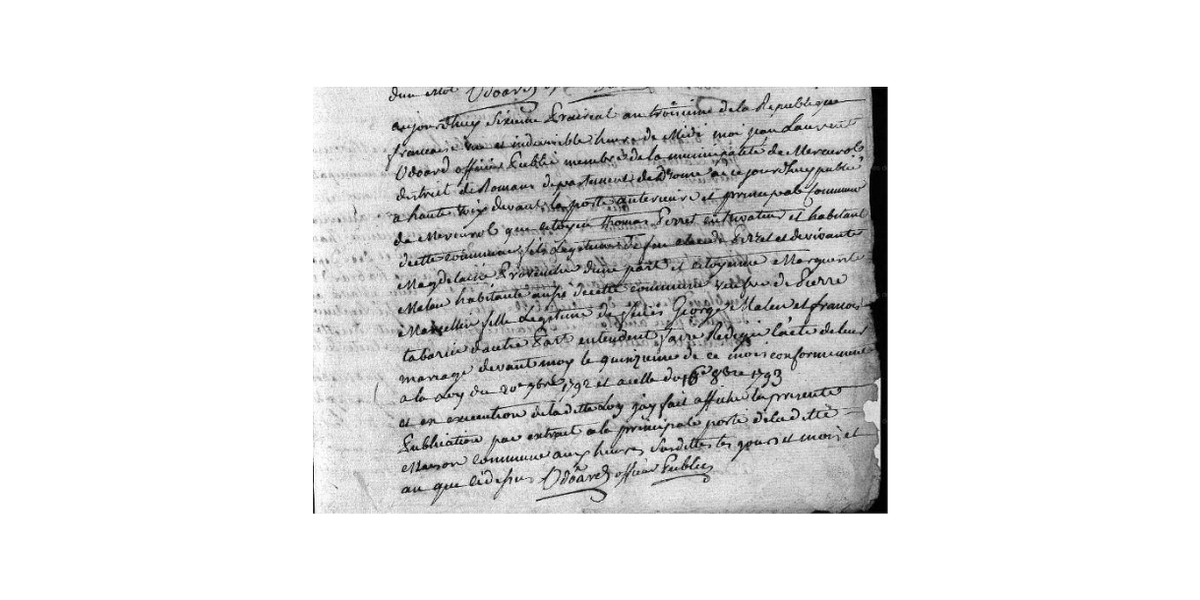 dun Mot Odoard
aujourdhuy Sixieme Prairial an troisieme de la Republique
francaise une et indivisible heure de Midi moi jean Laurent
Odoard officier Public membre de la municipalité de Mercurol
district de Romans departement de Drome ai ce jourdhuy publié
a haute voix devant la porte anterieure et principale commune
de Mercurol que citoyen thomas Perret cultivateur et habitant
de cette commune fils Legitime de feu Perret et de vivante
Magdelaine Provenche dune part et citoyenne Marguerite
Malen habitante aussi de cette commune veufve de Pierre
Marcellin fille Legitime de George Malen et francoise
tabarin dautre Part entendent faire Rediger lacte de leur
mariage devant moy le quinzieme de ce mois conformement
a la Loy du 20e 9bre 1792 et a celle du 16e 8bre 1793
et en execution de la ditte Loy jay fait affiche la presente
Publication par extrait a la principale porte de la ditte
Maison commune aux heures Surdittes les jours et mois et
an que cidessus Odoard officier Public